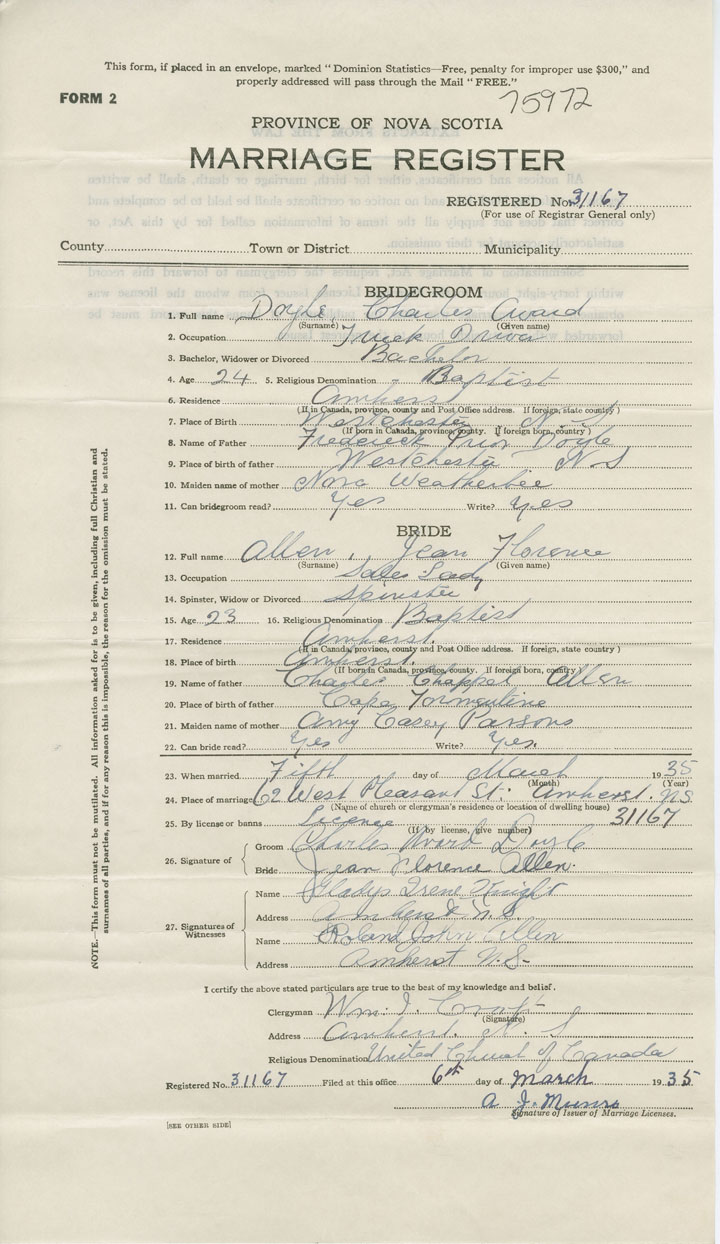 This form, if placed in an envelope, marked "Dominion Statistics—Free, penalty for improper use $300," and
properly addressed will pass through the Mail "FREE."
FORM 2
75972
PROVINCE OF NOVA SCOTIA
MARRIAGE REGISTER
REGISTERED No. 31167
(For use of Registrar General only)
County Town or District Municipality
BRIDEGROOM
1. Full name Doyle, Charles Award
(Surname) (Given name)
2. Occupation Truck Driver
3. Bachelor, Widower or Divorced Bachelor
4. Age 24 5. Religious Denomination Baptist
6. Residence Amherst
(If in Canada, province, county and Post Office address. If foreign, state country)
7. Place of Birth Westchester N.S
(If born in Canada, province, county. If foreign born, country)
8. Name of Father Frederick Prior Doyle
9. Place of birth of father Westchester N S
10. Maiden name of mother Nora Weatherbee
11. Can bridegroom read? Yes Write? Yes
BRIDE
12. Full name Allen, Jean Florence
(Surname) (Given name)
13. Occupation Sales Lady
14. Spinster, Widow or Divorced Spinster
15. Age 23 16. Religious Denomination Baptist
17. Residence Amherst.
(If in Canada, province, county and Post Office address. If foreign, state country)
18. Place of birth Amherst.
(If born in Canada, province, county. If foreign born, country)
19. Name of father Charles Chappel Allen
20. Place of birth of father Cape Tormentine
21. Maiden name of mother Amy Casey Parsons
22. Can bride read? Yes Write? Yes.
23. When married Fifth day of March 1935
(Month) (Year)
24. Place of marriage 62 West Pleasant St: Amherst. N.S.
(Name of church or clergyman's residence or location of dwelling house)
25. By license or banns Licence 31167
(If by license, give number)
26. Signature of
Groom Charles Award Doyle
Bride Jean Florence Allen.
27. Signatures of Witnesses
Name Gladys Irene Knight
Address Amherst N.S.
Name Roland John Allen
Address Amherst N.S.
I certify the above stated particulars are true to the best of my knowledge and belief.
Clergyman Wm. I. Croft
(Signature)
Address Amherst. N. S
Religious Denomination United Church of Canada
Registered No. 31167 Filed at this office 6th day of March 1935
A. J. Munro
Signature of Issuer of Marriage Licenses.
[SEE OTHER SIDE]
NOTE.—This form must not be mutilated. All information asked for is to be given, including full Christian and
surnames of all parties, and if for any reason this is impossible, the reason for the omission must be stated.